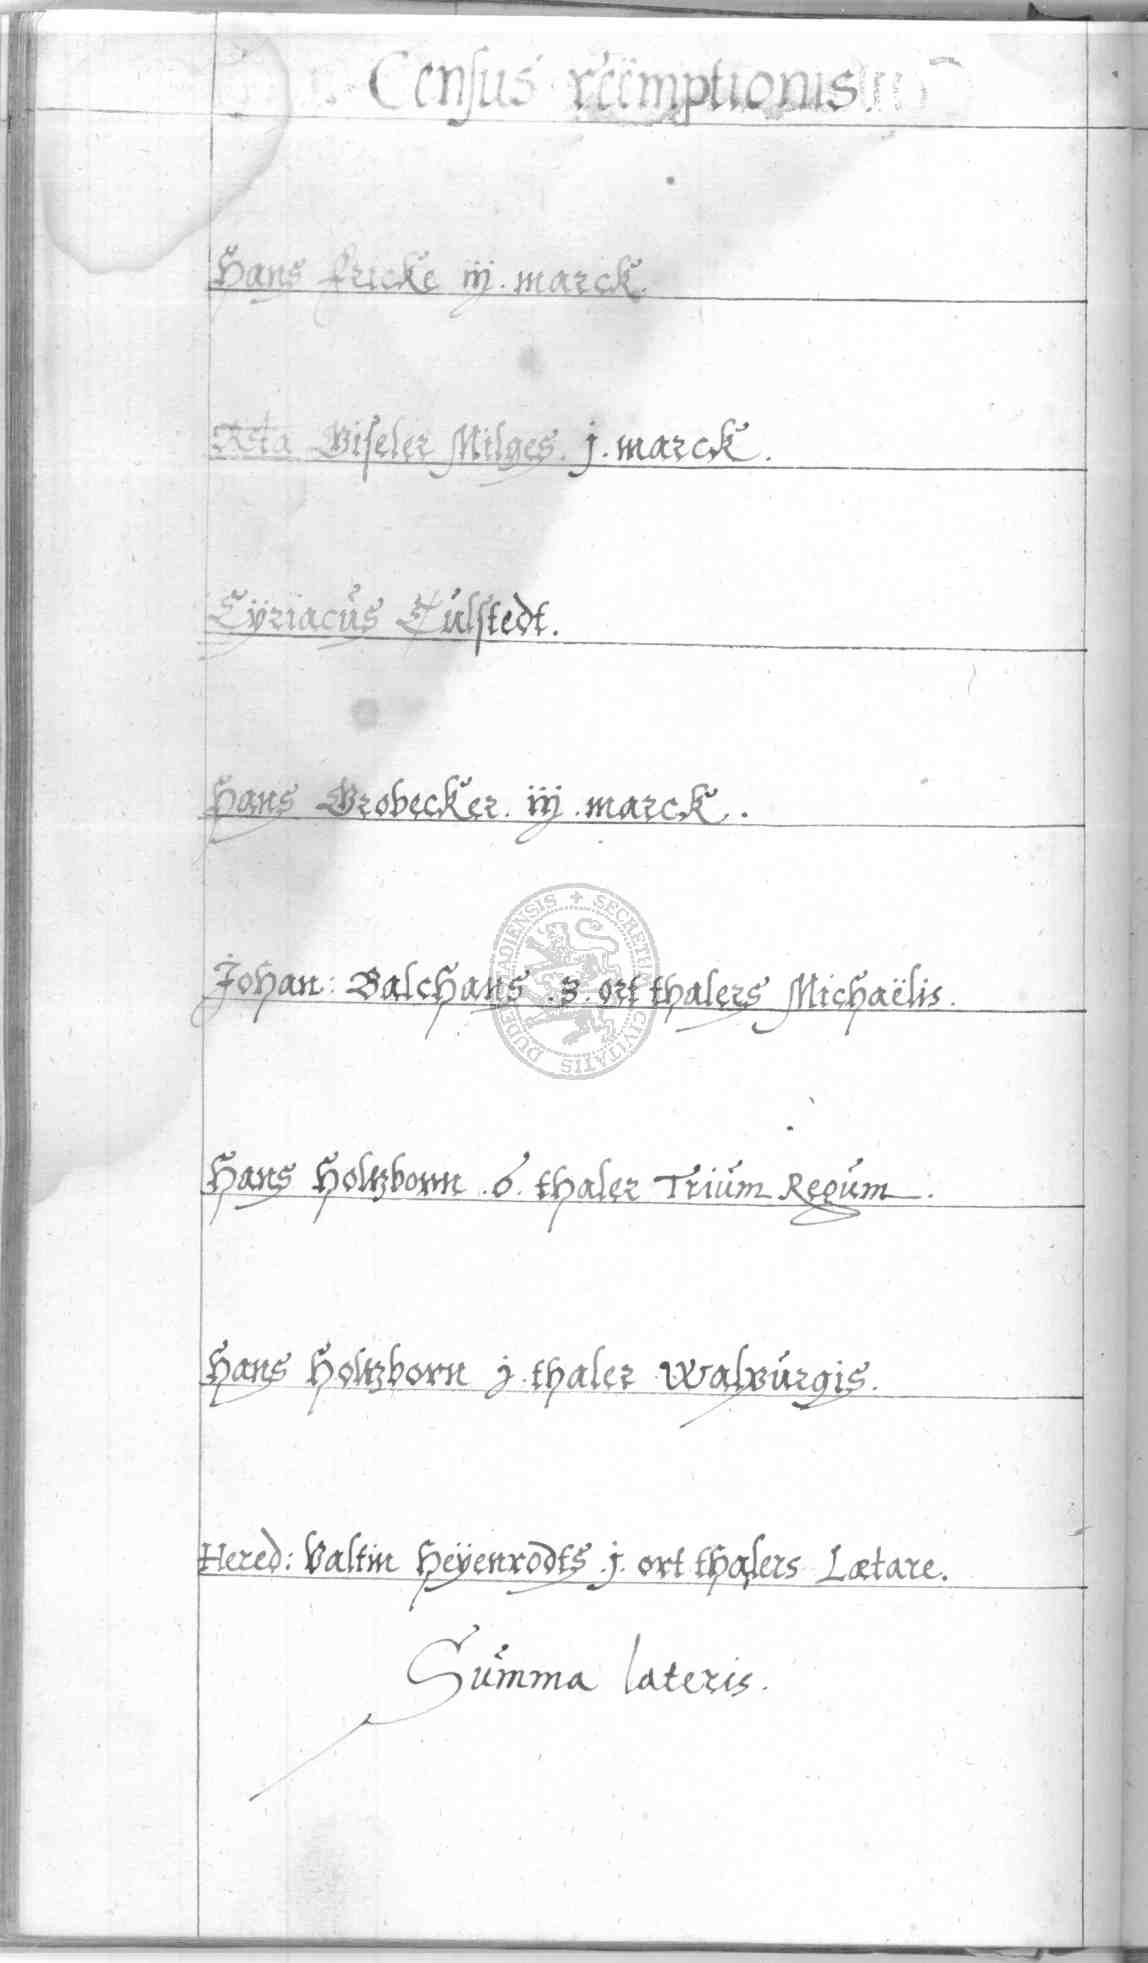 Census reëmptionis
Hans Fricke iij. marck.
Giseler Milges. j. marck.
Cÿriacus Tulstedt.
Hans Brobecker. iij. marck.
Johan: Balchans .3. ort thalers Michaëlis.
Hans Holtzborn .6. thaler Trium Regum.
Hans Holtzborn j. thaler Walburgis.
Hered: Valtin Heÿenrodts .j. ort thalers Lætare.
Summa lateris.
SECRETUM CIVITATIS DUDERSTADIENSIS